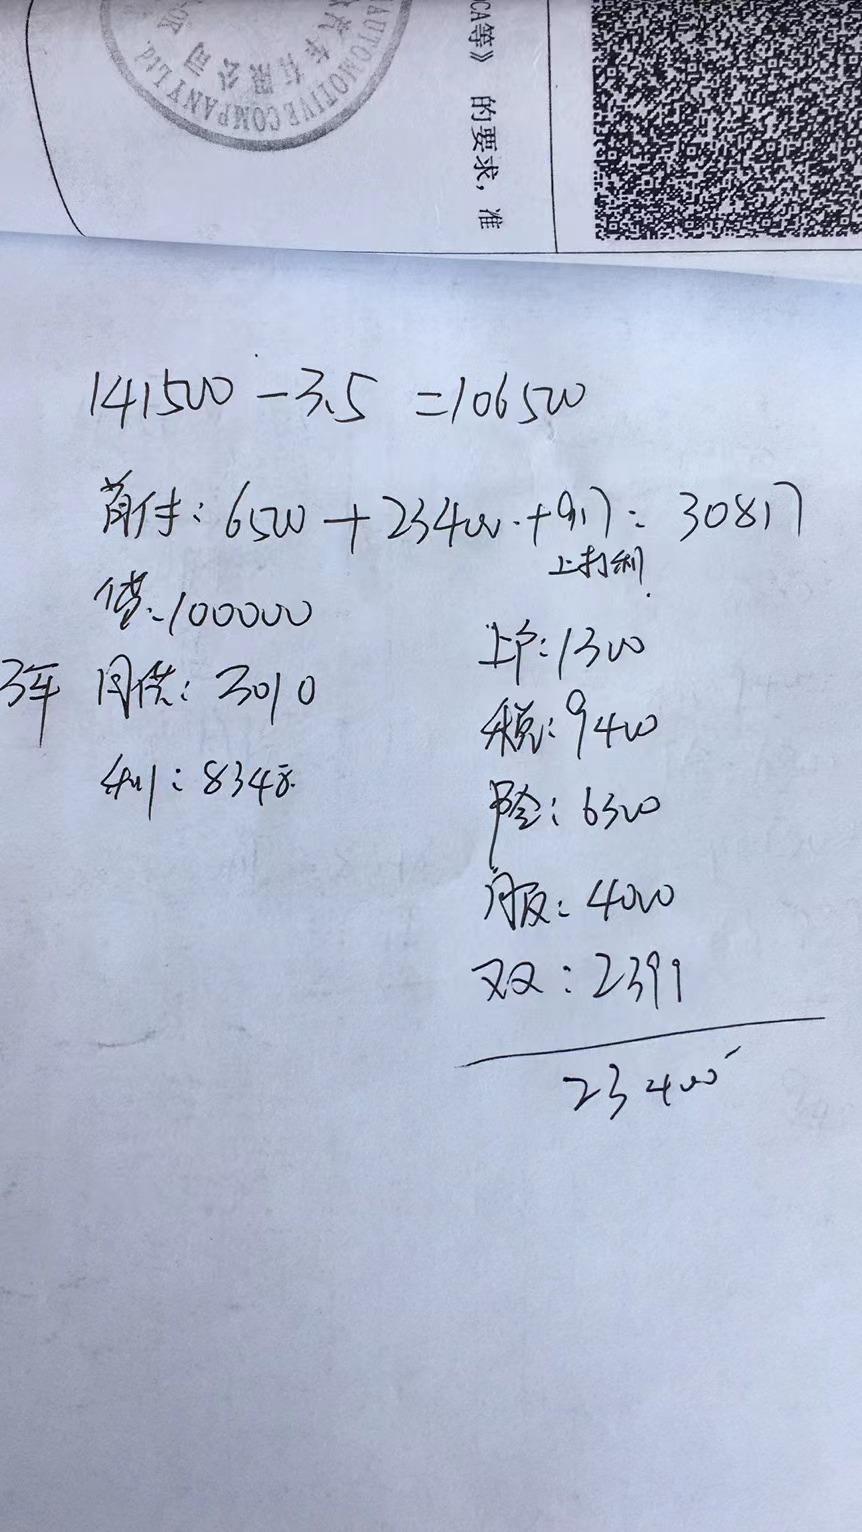 AUTOMOTIVE COMPANY Ltd.
汽车有限公司
CA等》 的要求，准
141500 - 3.5 = 106500
首付: 6500 + 23400 + 917: 30817
上打利
借 100000
3年 月供: 3010
利: 8348
上户: 1300
税: 9400
险: 6300
服: 4000
双: 2399
23400